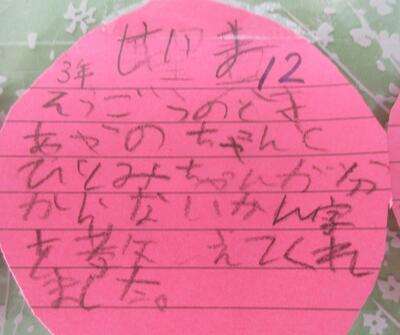 3年 せいま 12
そうごうのとき
あやのちゃんと
ひとみちゃんが分
からないかん字
を教 えてくれ
ました。